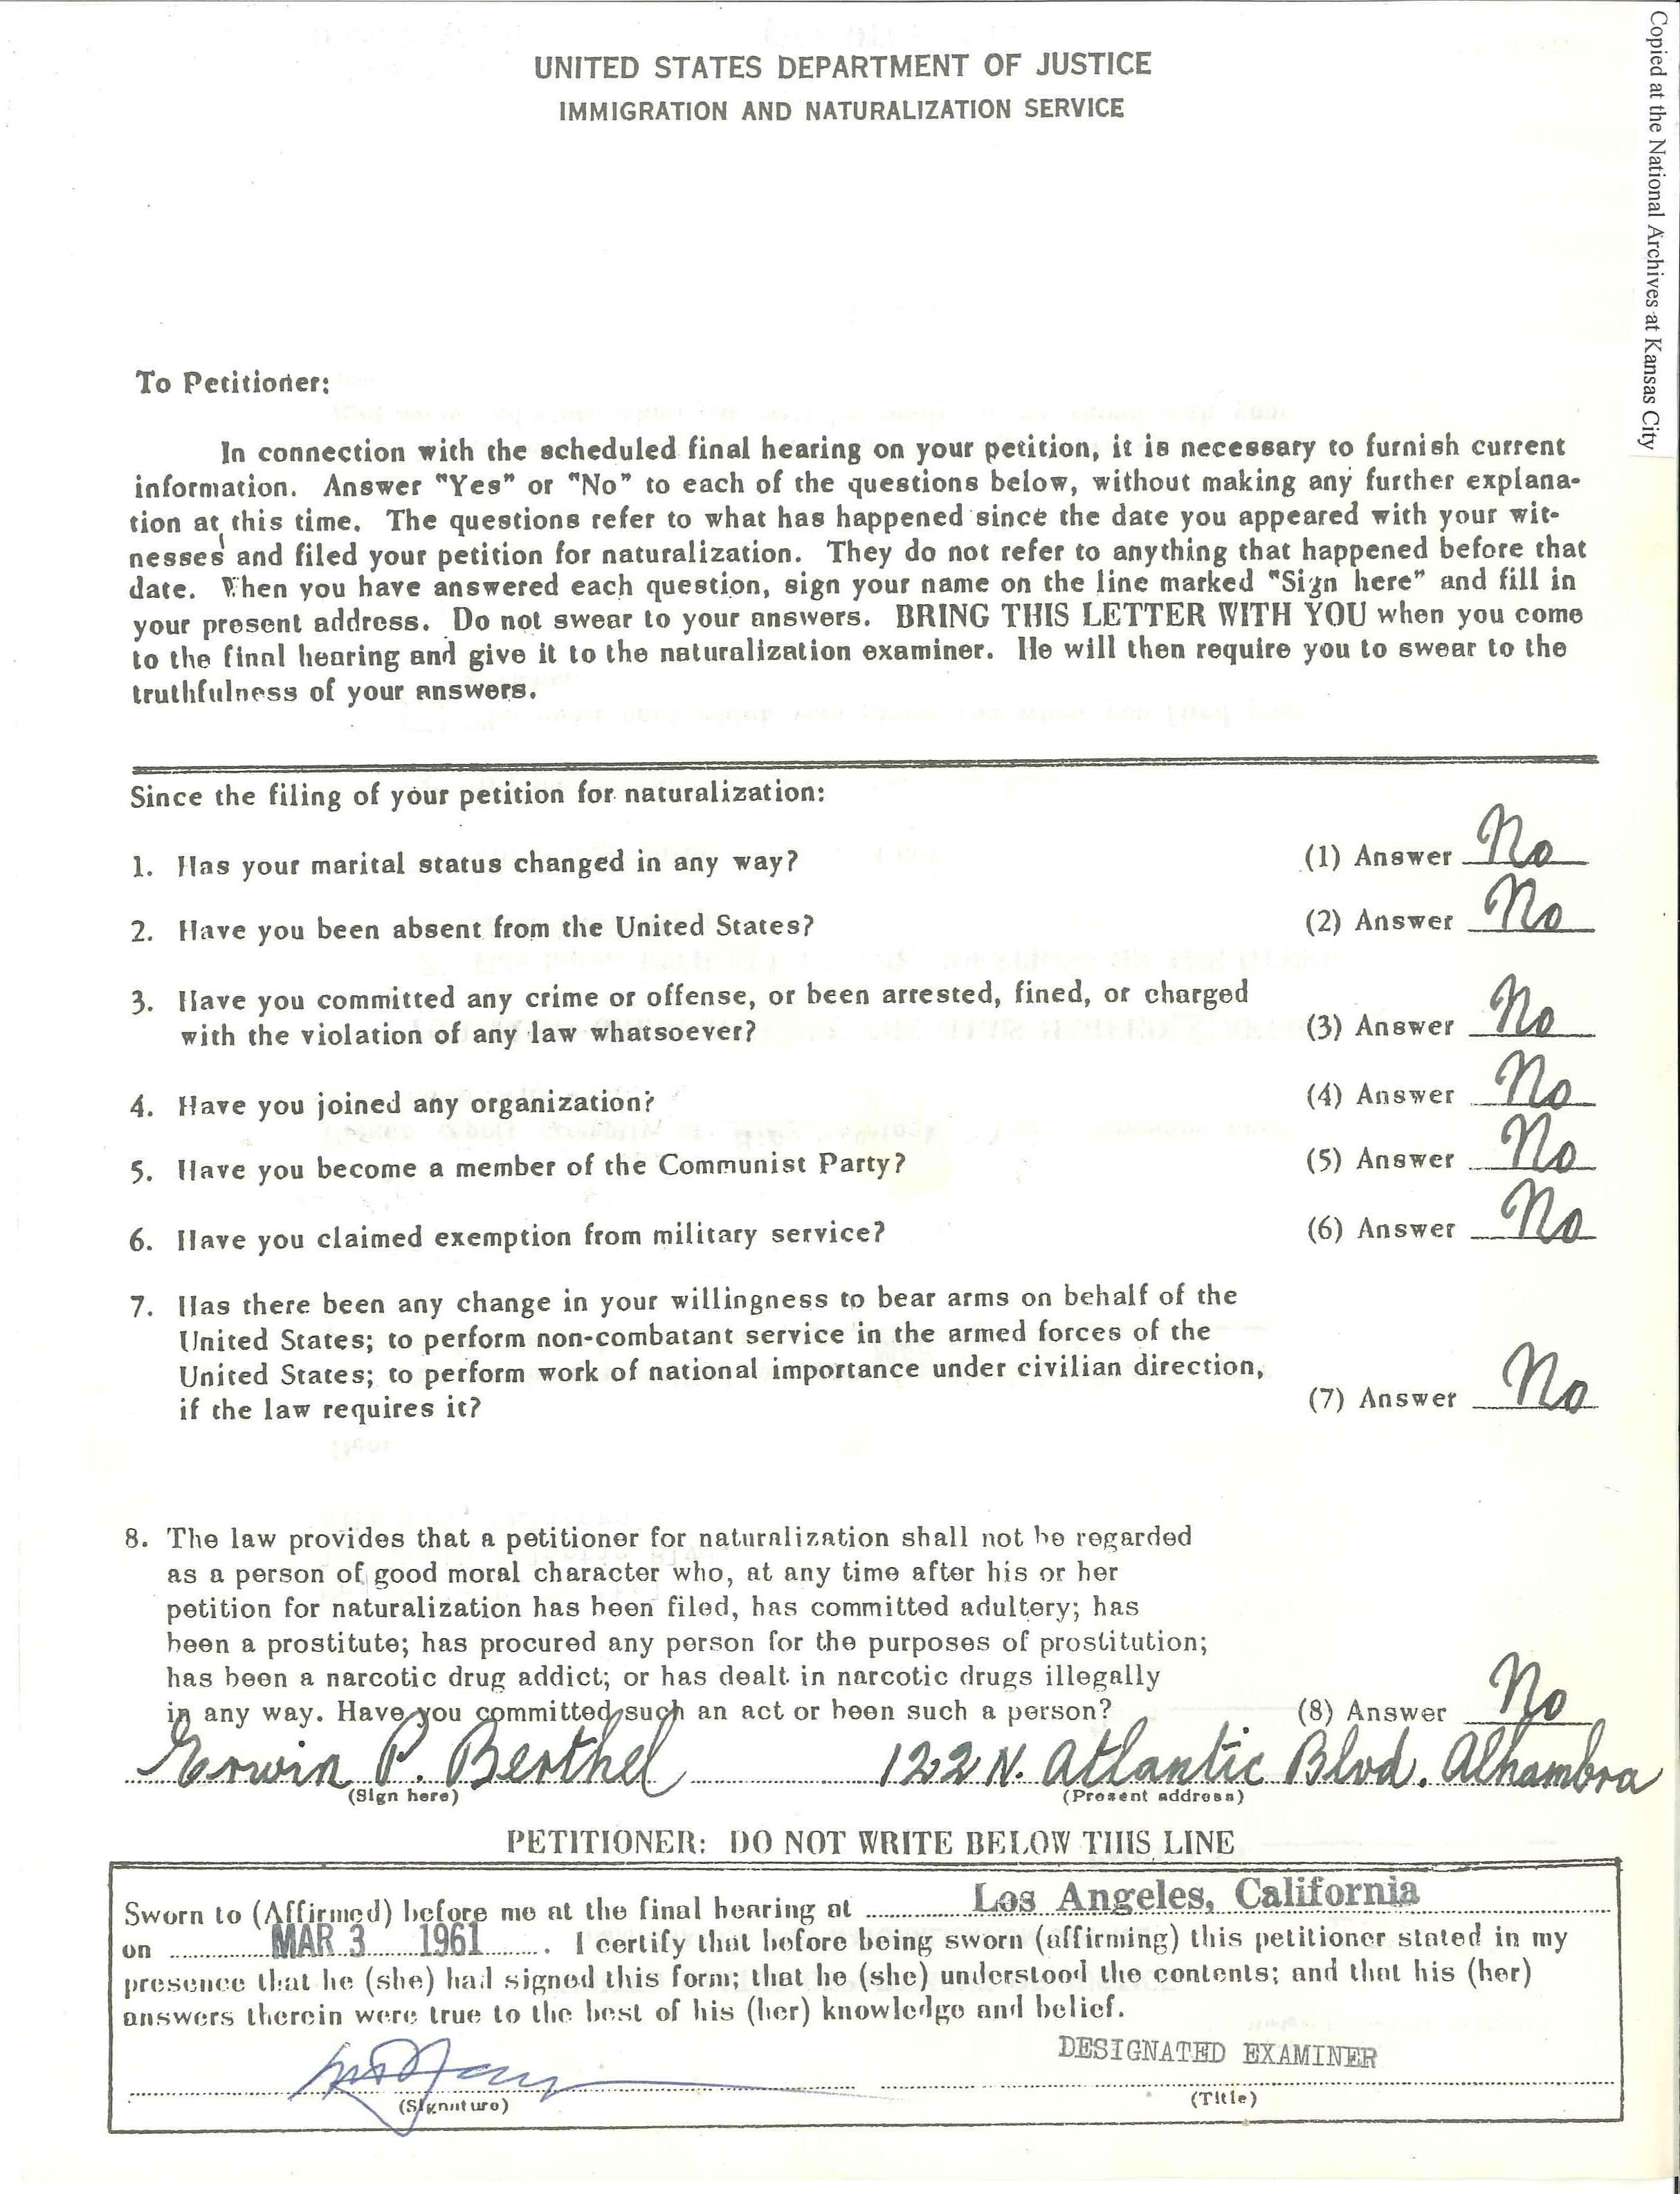 Copied at the National Archives at Kansas City
UNITED STATES DEPARTMENT OF JUSTICE
IMMIGRATION AND NATURALIZATION SERVICE
To Petitioner:
In connection with the scheduled final hearing on your petition, it is necessary to furnish current
information. Answer "Yes" or "No" to each of the questions below, without making any further explana-
tion at this time. The questions refer to what has happened since the date you appeared with your wit-
nesses and filed your petition for naturalization. They do not refer to anything that happened before that
date. When you have answered each question, sign your name on the line marked "Sign here" and fill in
your present address. Do not swear to your answers. BRING THIS LETTER WITH YOU when you come
to the final hearing and give it to the naturalization examiner. He will then require you to swear to the
truthfulness of your answers.
Since the filing of your petition for naturalization:
1. Has your marital status changed in any way? (1) Answer No
2. Have you been absent from the United States? (2) Answer No
3. Have you committed any crime or offense, or been arrested, fined, or charged
with the violation of any law whatsoever? (3) Answer No
4. Have you joined any organization? (4) Answer No
5. Have you become a member of the Communist Party? (5) Answer No
6. Have you claimed exemption from military service? (6) Answer No
7. Has there been any change in your willingness to bear arms on behalf of the
United States; to perform non-combatant service in the armed forces of the
United States; to perform work of national importance under civilian direction,
if the law requires it? (7) Answer No
8. The law provides that a petitioner for naturalization shall not be regarded
as a person of good moral character who, at any time after his or her
petition for naturalization has been filed, has committed adultery; has
been a prostitute; has procured any person for the purposes of prostitution;
has been a narcotic drug addict; or has dealt in narcotic drugs illegally
in any way. Have you committed such an act or been such a person? (8) Answer No
Erwin P. Berthel 122 N. Atlantic Blvd. Alhambra
(Sign here) (Present address)
PETITIONER: DO NOT WRITE BELOW THIS LINE
Sworn to (Affirmed) before me at the final hearing at Los Angeles, California
on MAR 3 1961. I certify that before being sworn (affirming) this petitioner stated in my
presence that he (she) had signed this form; that he (she) understood the contents; and that his (her)
answers therein were true to the best of his (her) knowledge and belief.
DESIGNATED EXAMINER
(Signature) (Title)